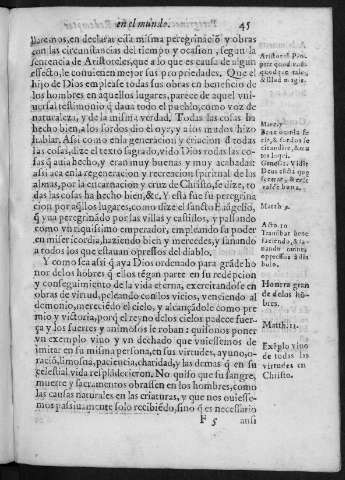 en el mundo. 45
Daremos, en declarar esta misma peregrinació y obras
con las circunstancias del tiempo y ocasion, segun la
sentencia de Aristoteles, que a lo que es causa de algun
effecto, le convienen mejor sus propriedades. Que el
hijo de Dios empleasse todas sus obras en beneficio
de los hombres en aquellos lugares, parece de aquel vni-
uersal testimonio q̃ daua todo el pueblo, como voz de
naturaleza, y de la misma verdad. Todas las cosas ha
hecho bien, a los sordos dio el oyr, y a los mudos hizo
hablar. Assi como en la generacion y criacion đ todas
las cosas, dize el texto sagrado, vido Dios todas las co-
sas q̃ auia hecho, y eran muy buenas y muy acabadas:
assi aca en la regeneracion y recreacion spiritual de las
almas, por la encarnacion y cruz de Christo, se dize, to
das las cosas ha hecho bien, &c. Y esta fue su peregrina
cion por aq̃llos lugares, como dize el sancto Euāgelio,
q̃ yua peregrinādo por las villas y castillos, y passando
como vn riquissimo emperador, empleando su poder
en misericordia, haziendo bien y mercedes, y sanando
a todos los que estauan opressos del diablo.
Y como sea assi q̃ aya Dios ordenado para grāde ho
nor de los hōbres q̃ ellos tēgan parte en su redempcion
y conseguimiento de la vida eterna, exercitandose en
obras de virtud, peleando con los vicios, venciendo al
demonio, mereciēdo el cielo, y alcançādole como pre
mio y victoria, porq̃ el reyno de los cielos padece fuer-
ça y los fuertes y animosos le roban: quisonos poner
vn exemplo viuo y vn dechado que vuiessemos de
imitar en su misma persona, en sus virtudes, ayuno, o-
ració, limosna, paciencia, charidad, y las demas q̃ en su
celestial vida resplādecieron. No quiso que su sangre,
muerte y sacramentos obrassen en los hombres, como
las causas naturales en las criaturas, y que nos ouiesse-
mos passiuamente solo recibiēdo, sino q̃ es necessario
F 5 ansi
Matth. 9.
Acto. 10
Honrra gran
de de los hō-
bres.
Matth. 11.
Exēplo viuo
de todas las
virtudes en
Christo.